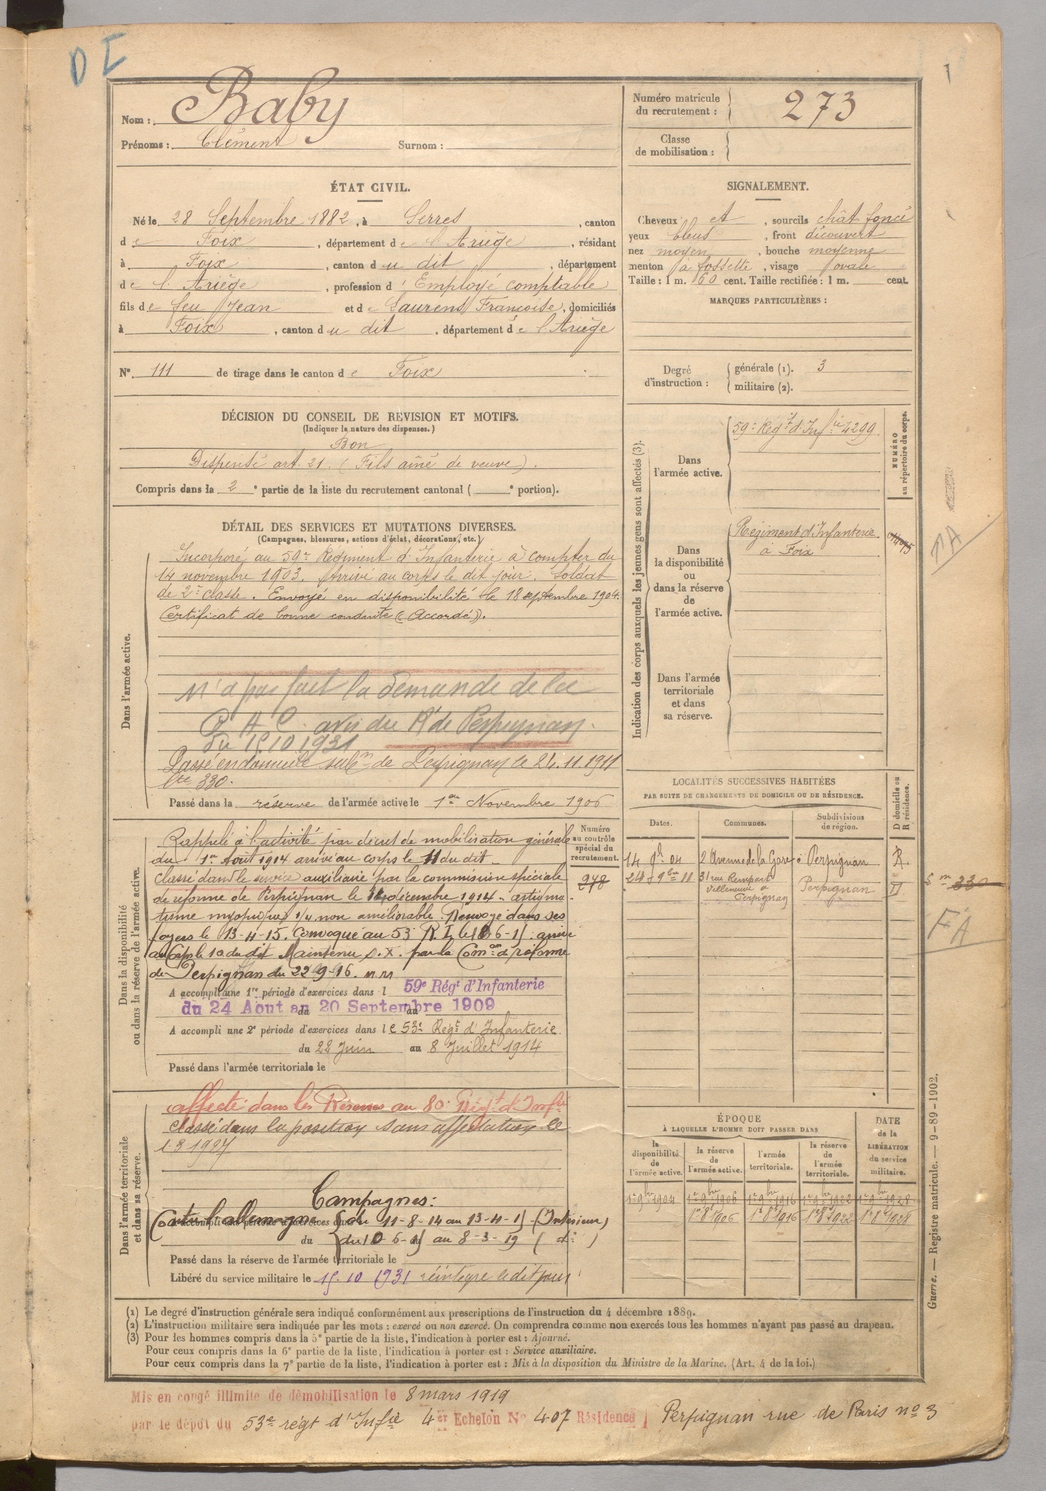 D I
1
Nom : Baby
Prénoms : Clément Surnom :
Numéro matricule du recrutement : 273
Classe de mobilisation :
ÉTAT CIVIL.
Né le 28 Septembre 1882, à Serres, canton
de Foix, département de l'Ariège, résidant
à Foix, canton du dit, département
de l'Ariège, profession d'Employé comptable
fils de feu Jean et de Laurens Françoise, domiciliés
à Foix, canton du dit, département de l'Ariège
N° 111 de tirage dans le canton de Foix
SIGNALEMENT.
Cheveux et, sourcils chât foncé
yeux bleus, front découvert
nez moyen, bouche moyenne
menton à fossette, visage ovale
Taille : 1 m. 60 cent. Taille rectifiée : 1 m. cent.
MARQUES PARTICULIÈRES :
Degré d'instruction : générale (1). 3
militaire (2).
DÉCISION DU CONSEIL DE REVISION ET MOTIFS.
(Indiquer la nature des dispenses.)
Bon
Dispensé art. 21. (Fils aîné de veuve).
Compris dans la 2e partie de la liste du recrutement cantonal ( e portion).
DÉTAIL DES SERVICES ET MUTATIONS DIVERSES.
(Campagnes, blessures, actions d'éclat, décorations, etc.)
Dans l'armée active.
Incorporé au 59e Régiment d'Infanterie à compter du
14 novembre 1903. Arrivé au corps le dit jour. Soldat
de 2e classe. Envoyé en disponibilité le 18 septembre 1904.
Certificat de bonne conduite (Accordé).
n'a pas fait la demande de la
C A C. avis du Rt de Perpignan
du 15.10 1931
Passé en domicile subon de Perpignan le 24.11.1911
Lte 330.
Passé dans la réserve de l'armée active le 1er Novembre 1906
Indication des corps auxquels les jeunes gens sont affectés (3).
Dans l'armée active.
59e Régt d'Infie 4299
NUMÉRO au répertoire du corps.
Dans la disponibilité ou dans la réserve de l'armée active.
Régiment d'Infanterie
à Foix
Dans l'armée territoriale et dans sa réserve.
PA
Dans la disponibilité ou dans la réserve de l'armée active.
Numéro au contrôle spécial du recrutement.
978
Rappelé à l'activité par décret de mobilisation générale
du 1er Août 1914 arrivé au corps le 11 du dit
classé dans le service auxiliaire par la commission spéciale
de réforme de Perpignan le décembre 1914
non améliorable. Renvoyé dans ses
foyers le 13-4-15. Convoqué au 53e R I le arrivé
au Corps le 10 du dit Maintenu S.X. par la Comon de réforme
de Perpignan du 22-9-16.
A accompli une 1re période d'exercices dans l 59e Régt d'Infanterie
du 24 Aout au 20 Septembre 1909
A accompli une 2e période d'exercices dans le 53e Régt d'Infanterie
du 22 Juin au 8 Juillet 1914
Passé dans l'armée territoriale le
LOCALITÉS SUCCESSIVES HABITÉES
PAR SUITE DE CHANGEMENTS DE DOMICILE OU DE RÉSIDENCE.
Dates. Communes. Subdivisions de région. D domicile ou R résidence.
14 9b 04 2 Avenue de la Gare à Perpignan R
24 9bre 11 31 rue Rempart Villeneuve à Perpignan Perpignan D
330
FA
Dans l'armée territoriale et dans sa réserve.
affecté dans les Réserves au 80e Régt d'Infie
Classé dans la position sans affectation le
1 3 1927
Campagnes :
Contre l'allemagne du 11-8-14 au 13-4-15 (Intérieur)
du 10-6-15 au 8-3-19 ( d° )
Passé dans la réserve de l'armée territoriale le
Libéré du service militaire le 15.10 1931 réintégré le dit jour
ÉPOQUE
À LAQUELLE L'HOMME DOIT PASSER DANS
la disponibilité de l'armée active. la réserve de l'armée active. l'armée territoriale. la réserve de l'armée territoriale.
DATE de la LIBÉRATION du service militaire.
1er 9bre 1904 1er 9bre 1906 1er 9bre 1916 1er 9bre 1922 1er 9bre 1928
1er 8 1906 1er 8 1916 1er 8 1922 1er 8 1928
(1) Le degré d'instruction générale sera indiqué conformément aux prescriptions de l'instruction du 4 décembre 1889.
(2) L'instruction militaire sera indiquée par les mots : exercé ou non exercé. On comprendra comme non exercés tous les hommes n'ayant pas passé au drapeau.
(3) Pour les hommes compris dans la 5e partie de la liste, l'indication à porter est : Ajourné.
Pour ceux compris dans la 6e partie de la liste, l'indication à porter est : Service auxiliaire.
Pour ceux compris dans la 7e partie de la liste, l'indication à porter est : Mis à la disposition du Ministre de la Marine. (Art. 4 de la loi.)
Guerre. — Registre matricule. — 9-89-1902.
Mis en congé illimité de démobilisation le 8 mars 1919
par le dépôt du 53e régt d'Infie 4er Echelon N° 407 Résidence Perpignan rue de Paris n° 3